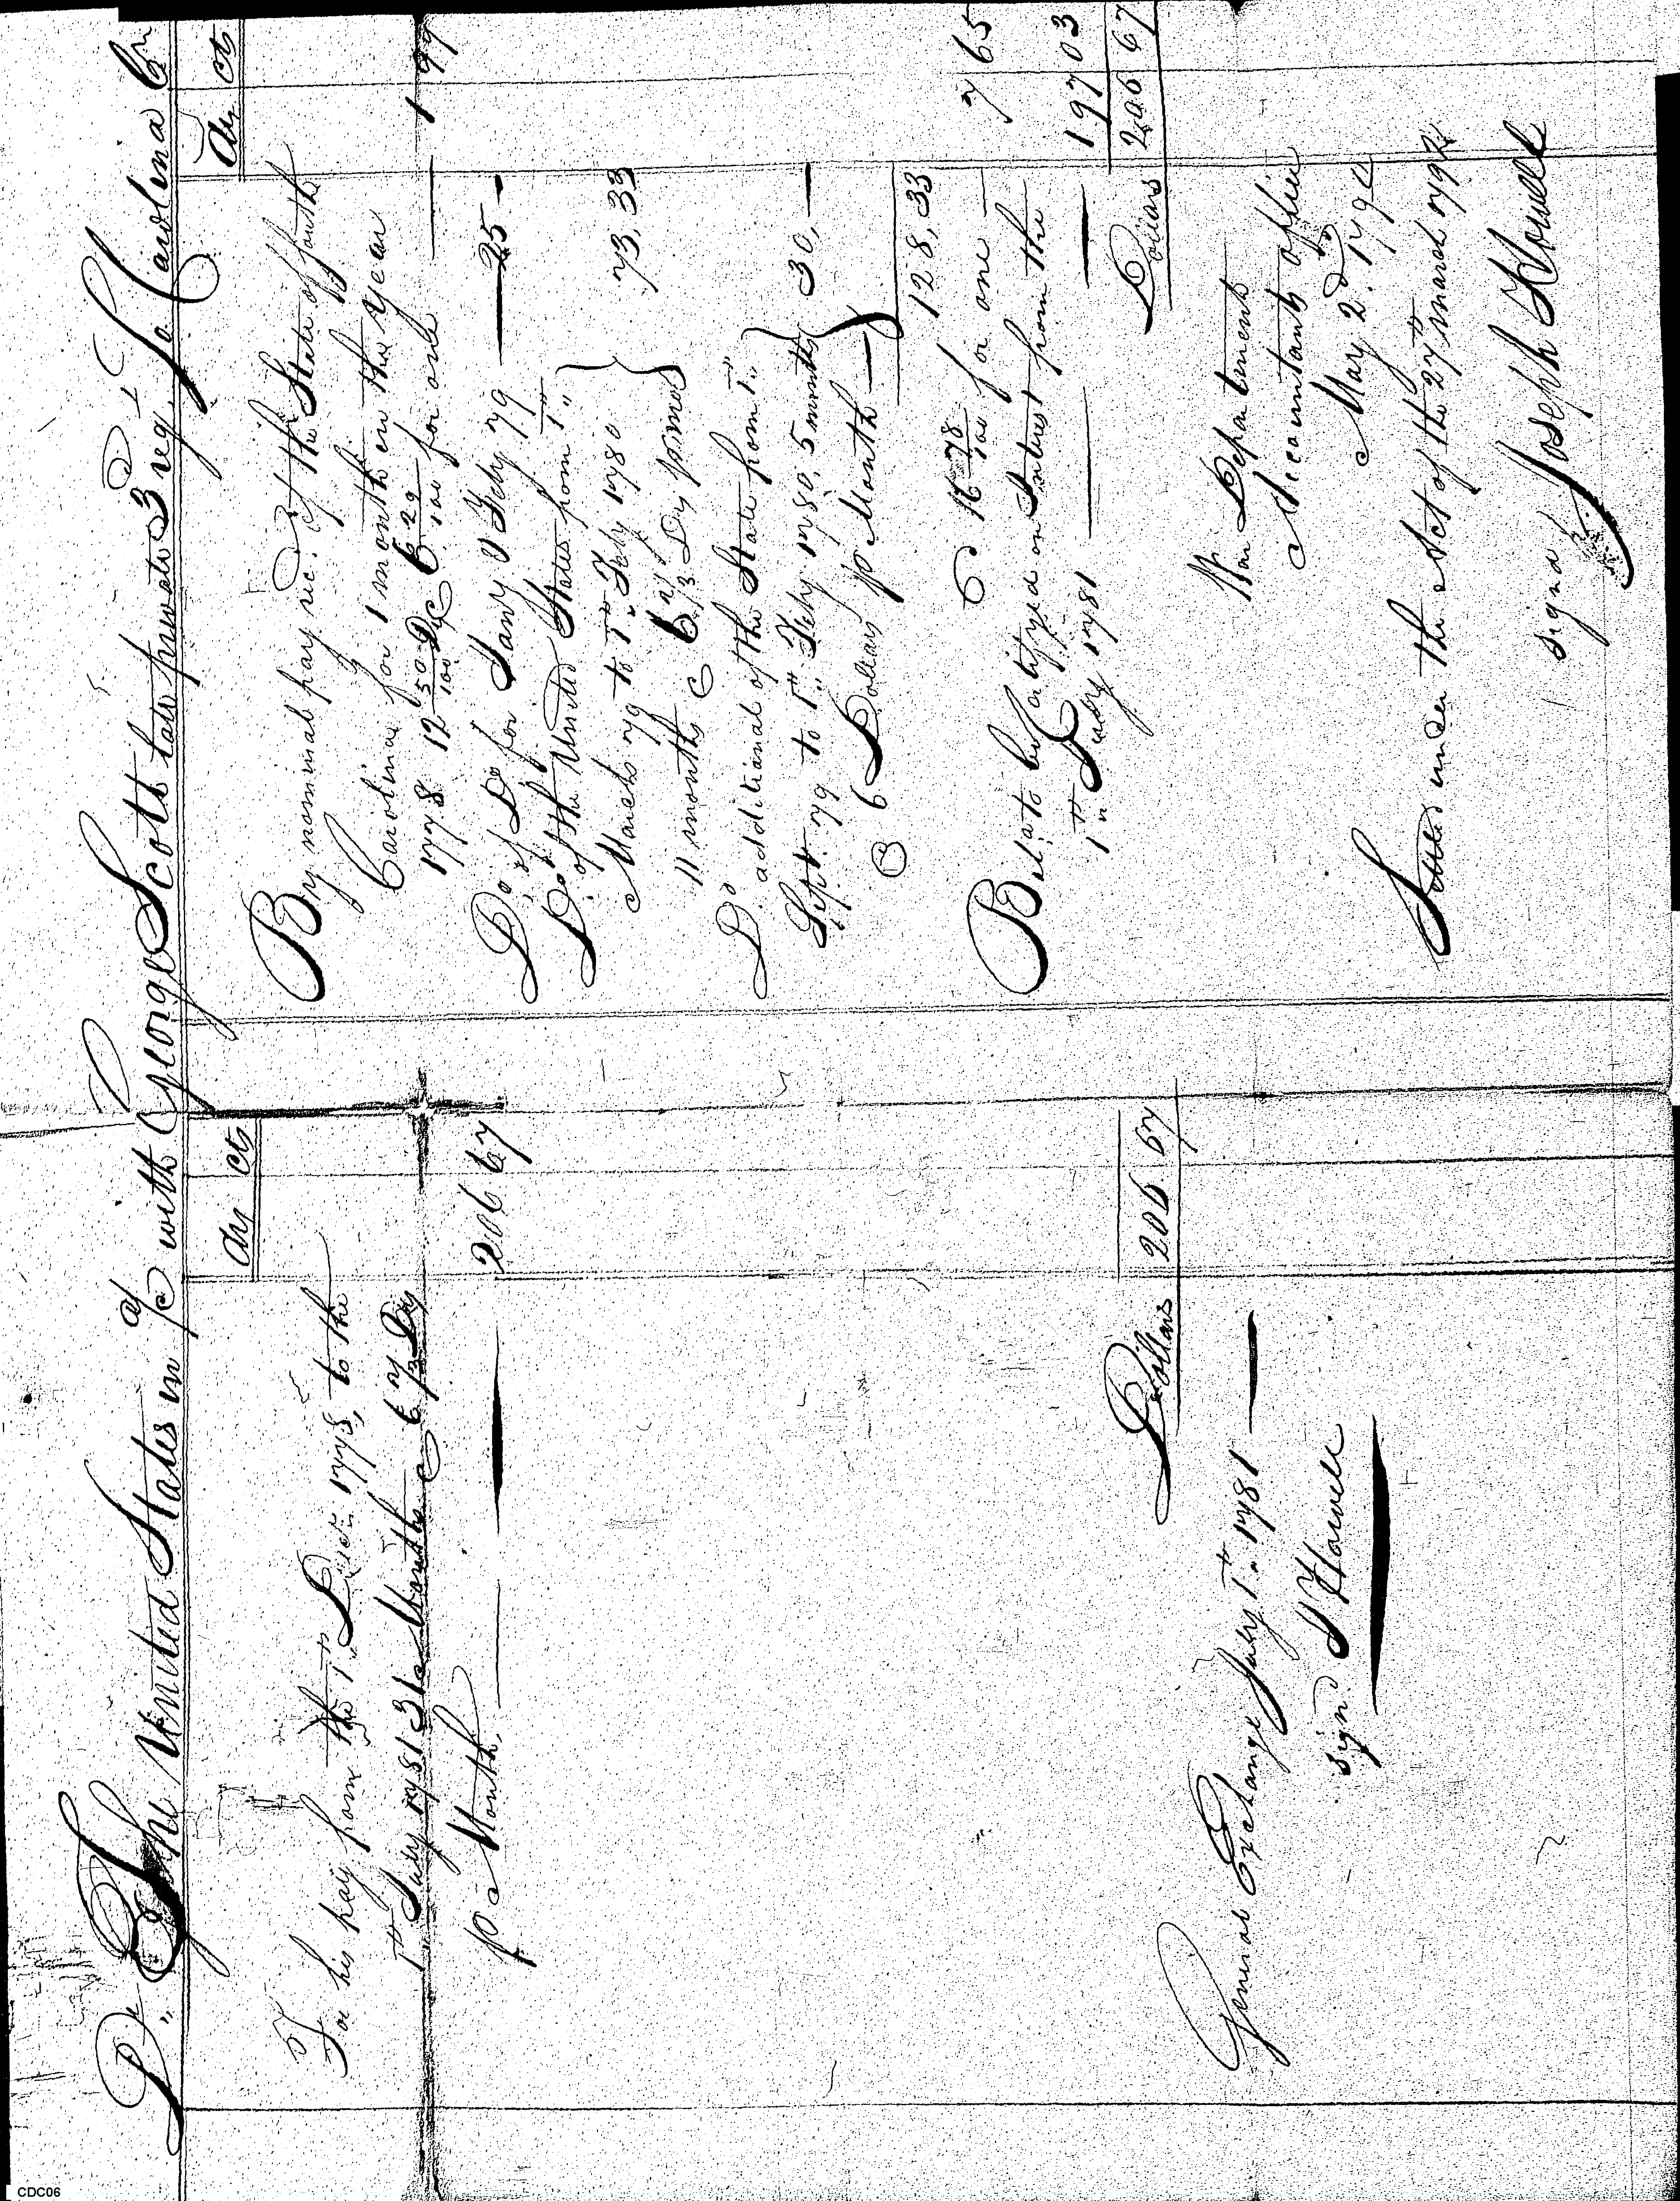 Dr. The United States in a/c with George Scott late private 3 reg. So Carolina Cr
Drs Cts
For his pay from the 1st Decr. 1778, to the
1st Jany 1781 31 Months @ 6 2/3 Drs
p Month. 206 67
Dollars 206 67
General Exchange Jany 1st 1781
signd. J Howell
Drs Cts
By nominal pay recd. of the State of South
Carolina for 1 month in the year
1778 12 50/100 Drs @ 6 29/100 for one 1 99
Do of Do for Jany & Feby 79 25 -
Do of the United States from 1st
March 79 to 1st Feby 1780
11 months @ 6 2/3 Drs p mo 73,33
Do additional of the State from 1st
Sept. 79 to 1st Feby 1780, 5 months 30, -
@ 6 Dollars p Month
128,33
@ 16 78/100 for one 7 65
Bale. to be certifyed on Interest from the
1st Jany 1781 197 03
Dollars 206 67
War Department
Accountants office
May 2d. 1794
Settled under the Act of the 27th march 1792
signd. Joseph Howell
CDC06